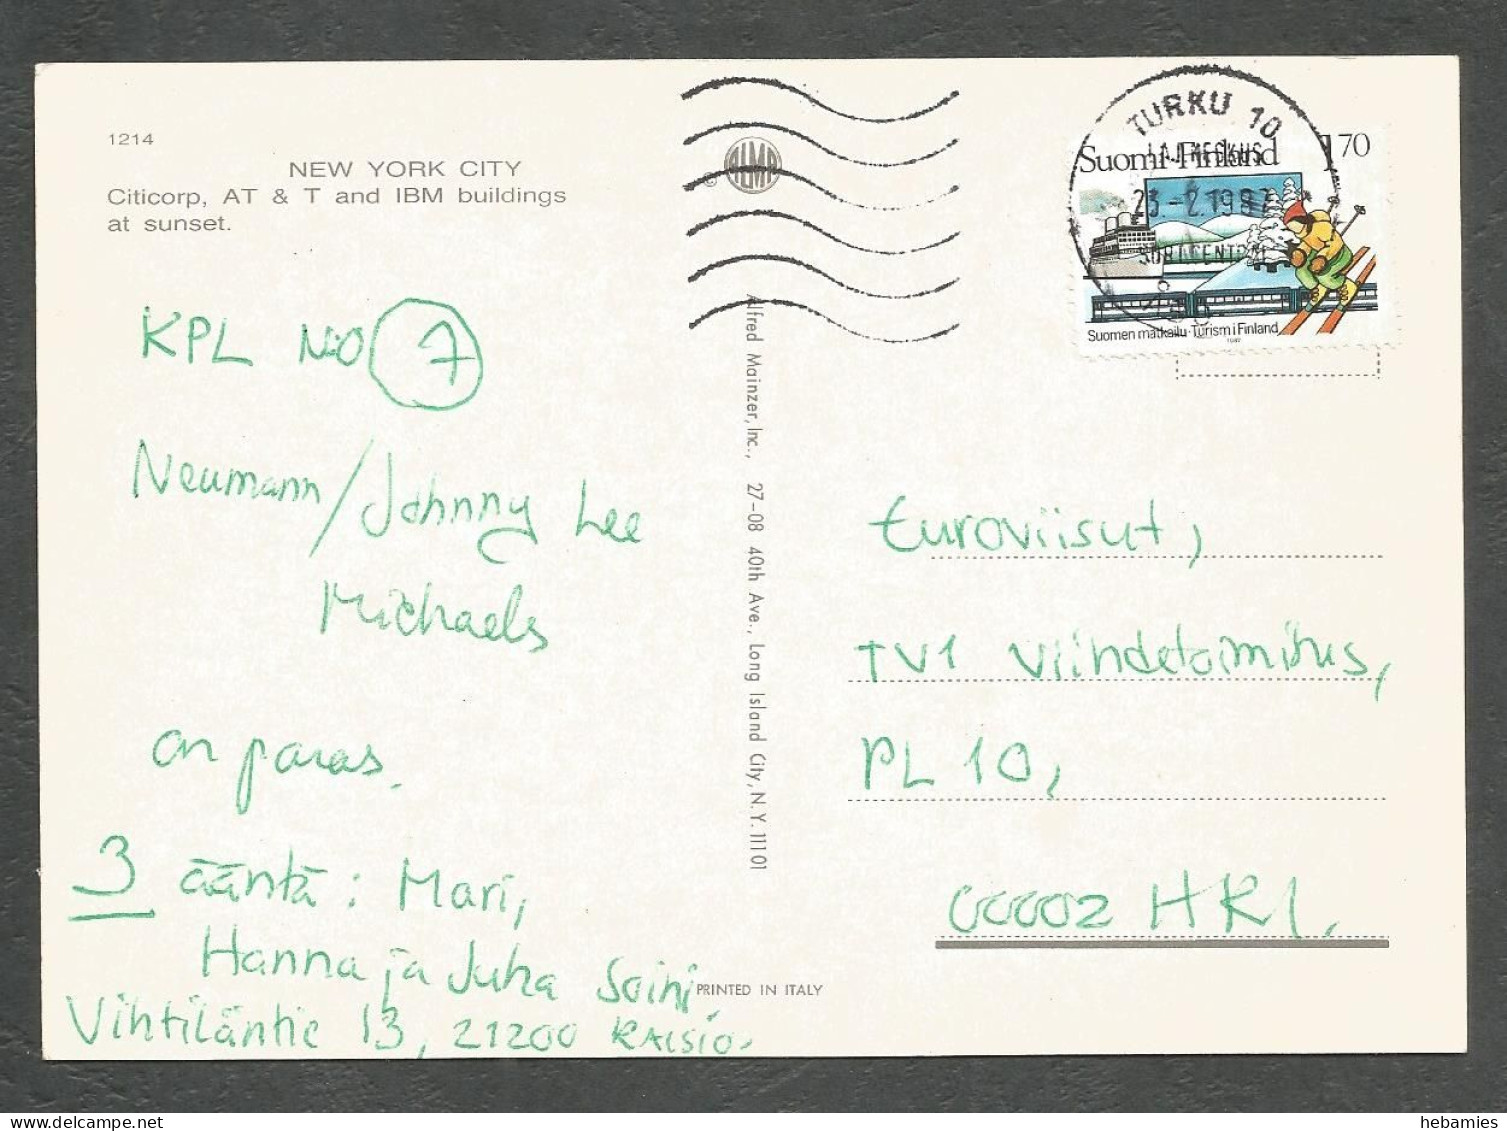 1214
NEW YORK CITY
Citicorp, AT & T and IBM buildings
at sunset.
KPL N:O 7
Neumann/Johnny Lee
Michaels
on paras.
3 ääntä: Mari,
Hanna ja Juha Soini,
Vihtiläntie 13, 21200 RAISIO.
© ALMA
Alfred Mainzer, Inc., 27-08 40th Ave., Long Island City, N.Y. 11101
PRINTED IN ITALY
TURKU 10
23.-2.1987
Suomi-Finland 1,70
Suomen matkailu·Turism i Finland
1987
Euroviisut,
TV1 Viihdetoimitus,
PL 10,
00002 HKI.
hebamies